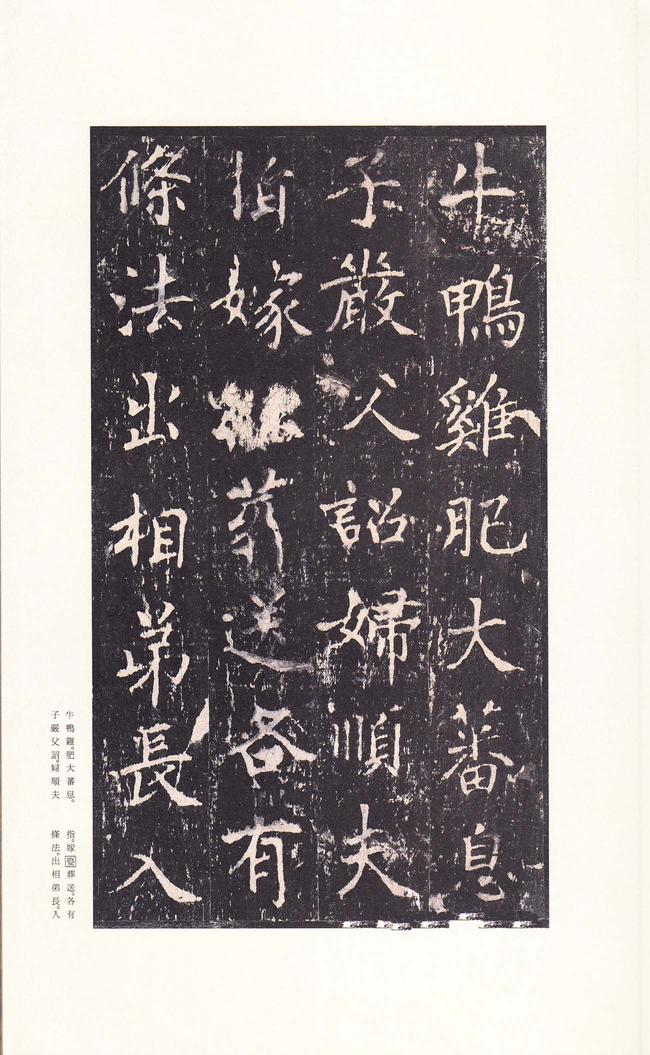 牛鴨雞肥大蕃息
子嚴父詔婦順夫
指嫁葬送各有
條法出相弟長入
牛鴨雞。肥大蕃息。
子嚴父詔。婦順夫
指。嫁娶葬送。各有
條法。出相弟長。入